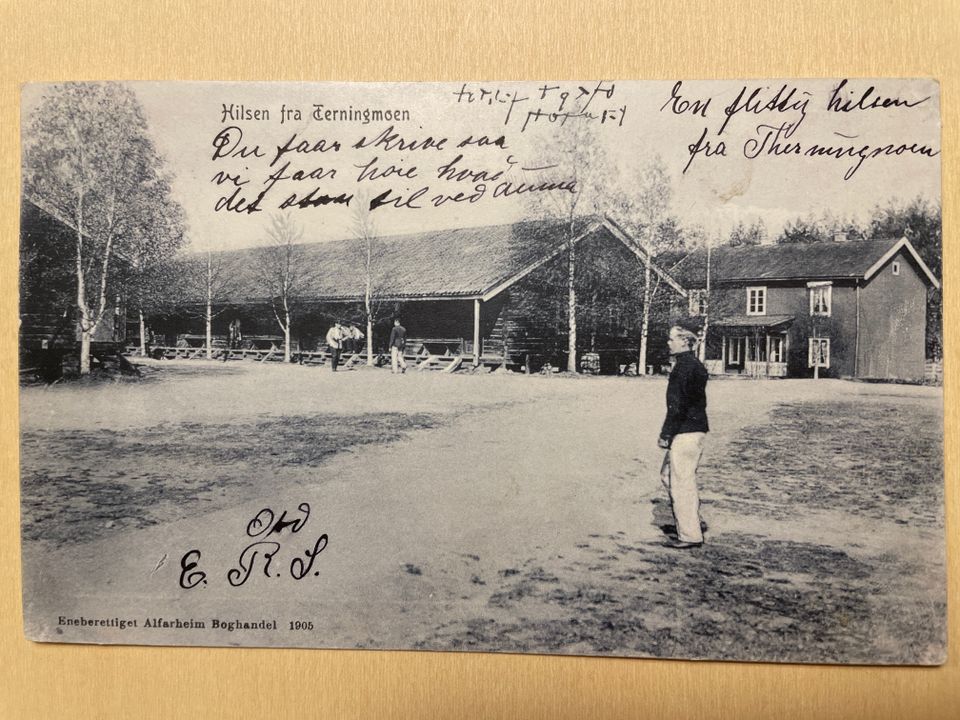 Hilsen fra Terningmoen
En flittig hilsen
fra Therningmoen
Du faar skrive saa
vi faar høie hvad
det staar til ved
E. R. S.
Eneberettiget Alfarheim Boghandel 1905